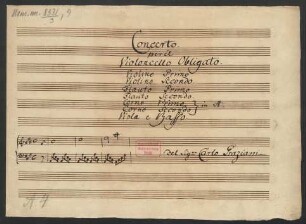 Concerto
per il
Violoncello Obligato
Violino Primo
Violino Secondo
Flauto Primo
Flauto Secondo
Corno Primo
Corno Secondo } in A.
Viola e Basso
Del Sigr Carlo Graziani